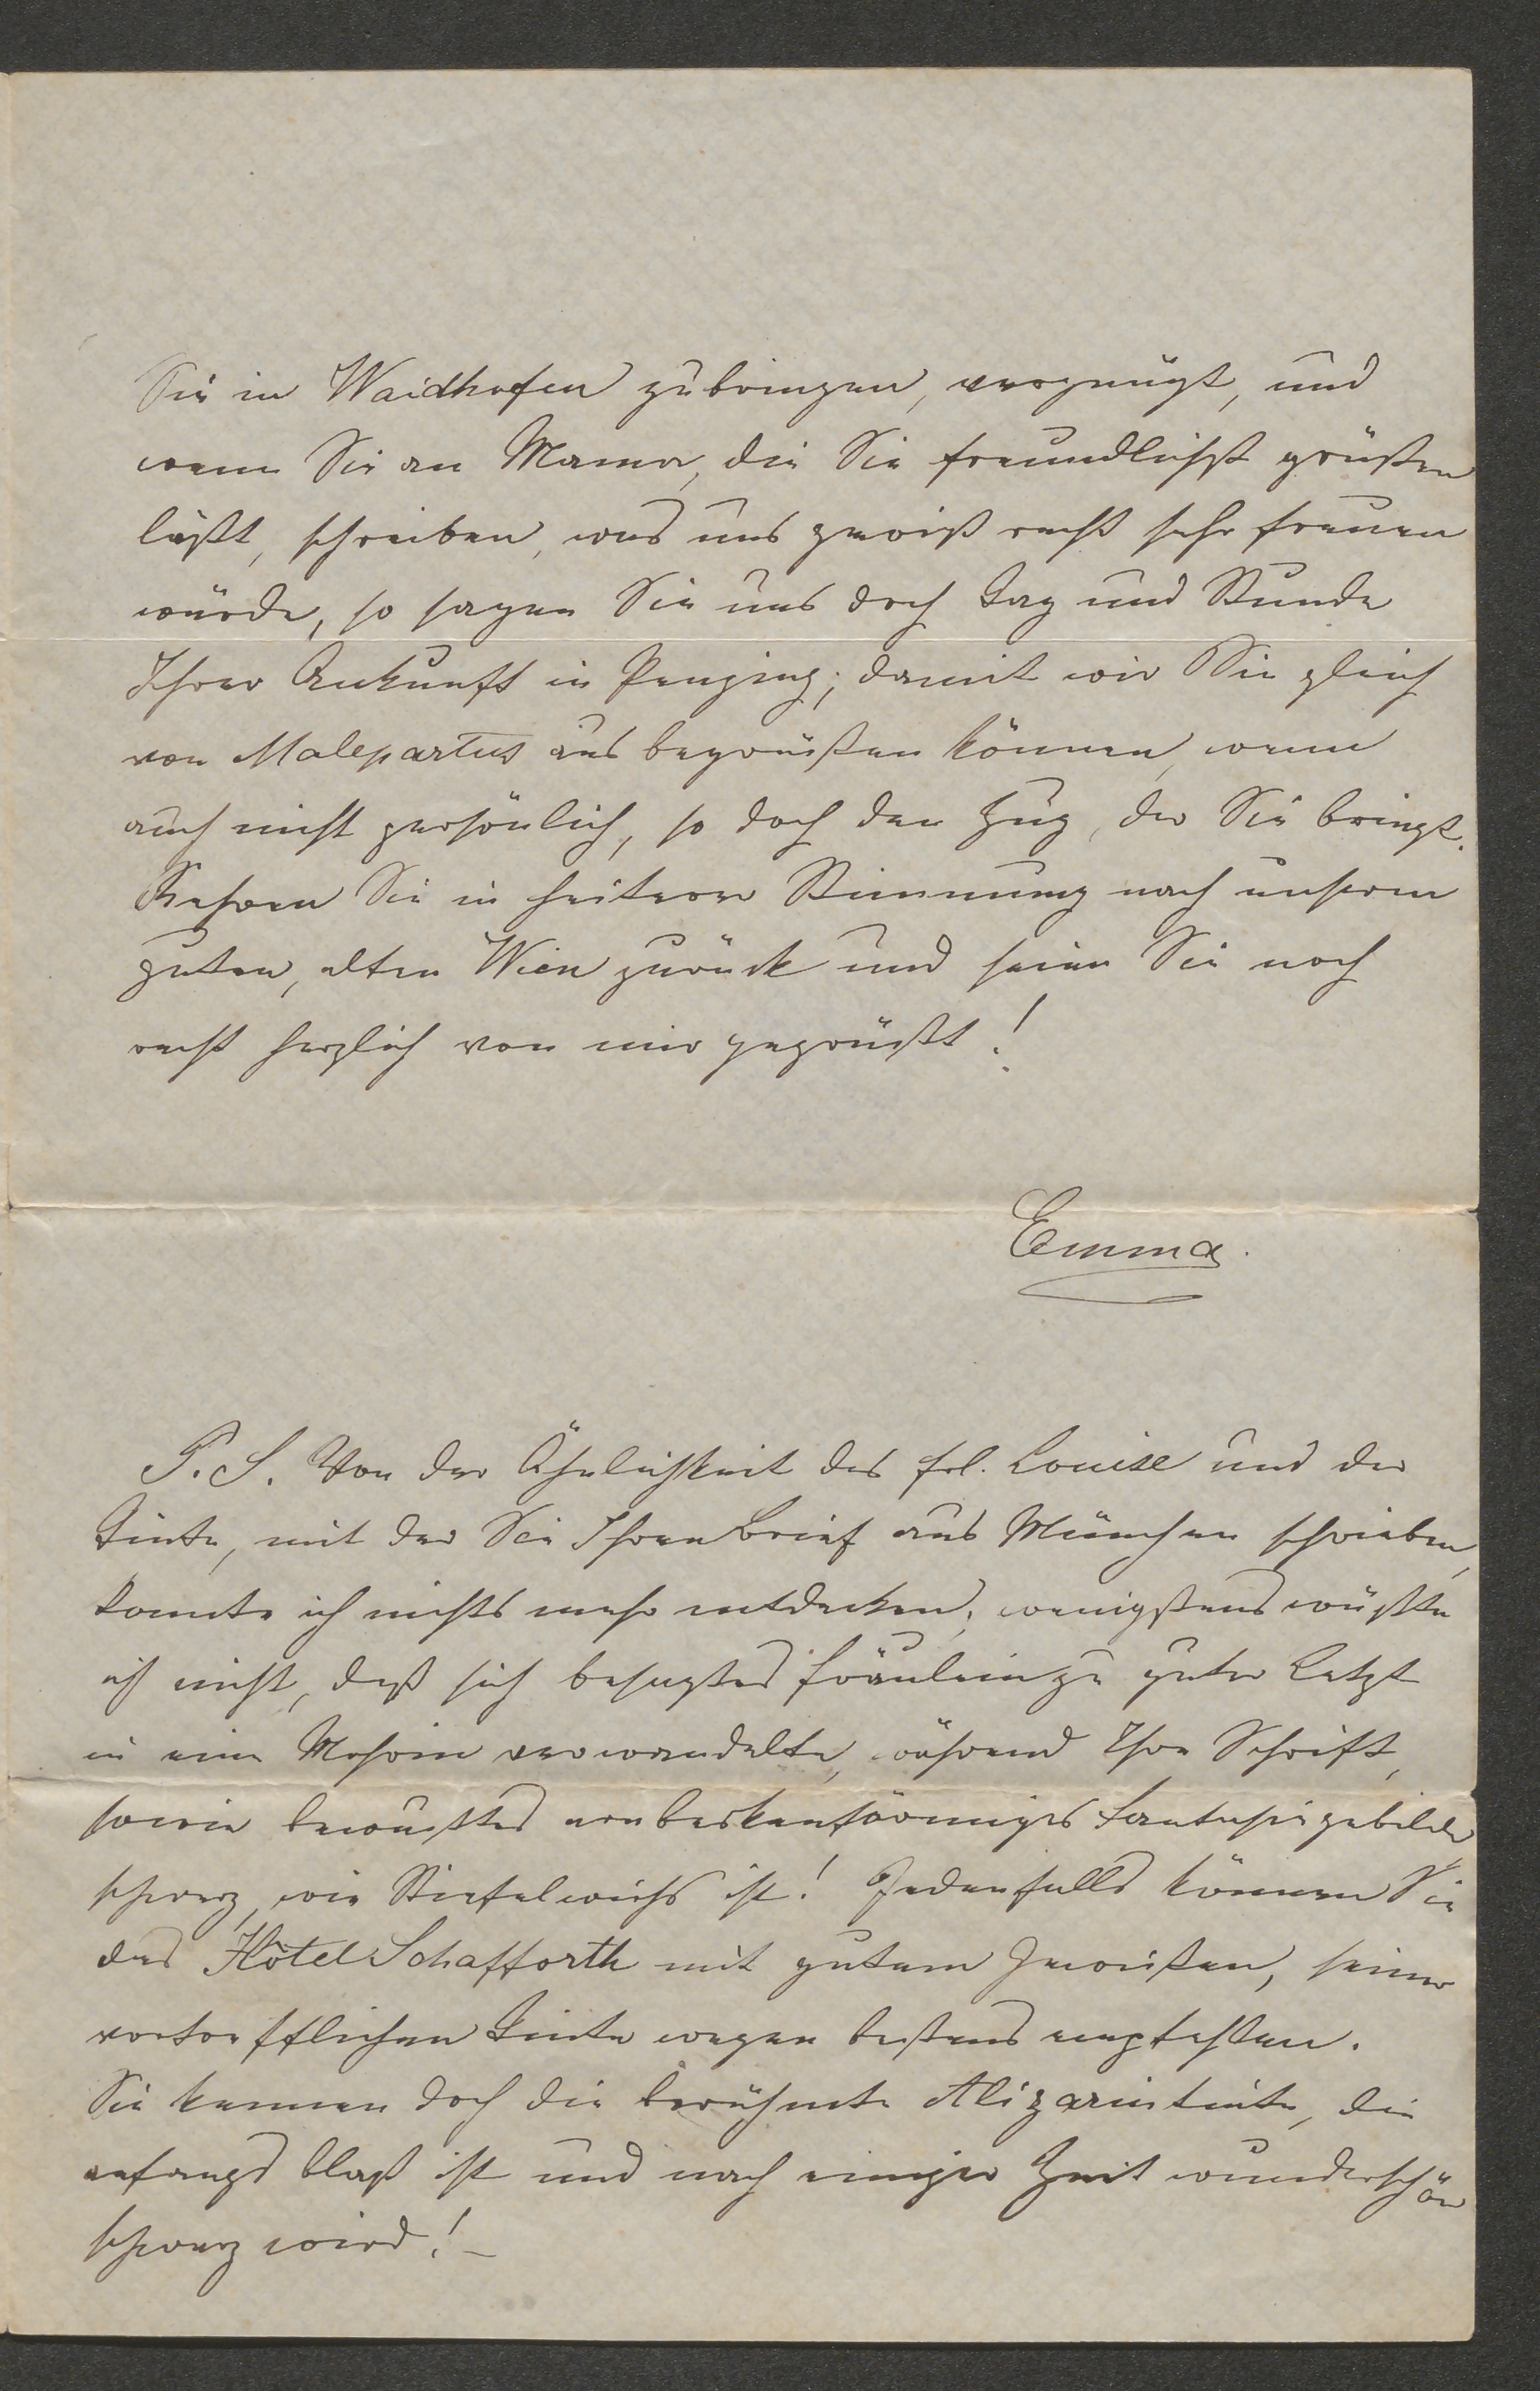 Sie in Waidhofen zubringen, vergnügt, und
wenn Sie an Mama, die Sie freundlichst grüßen
läßt, schreiben, was uns gewiß recht sehr freuen
würde, so sagen Sie uns doch Tag und Stunde
Ihrer Ankunft in Penzing; damit wir Sie gleich
von Malepartus aus begrüßen können, wenn
auch nicht persönlich, so doch den Zug, der Sie bringt.
Kehren Sie in heiterer Stimmung nach unserem
guten, alten Wien zurück und seien Sie noch
recht herzlich von mir gegrüßt!
Emma.
P. S. Von der Ähnlichkeit des Frl. Louise und der
Tinte, mit der Sie Ihren Brief aus München schrieben,
konnte ich nichts mehr entdecken; wenigstens wüßte
ich nicht, daß sich besagtes Fräulein zu guter Letzt
in eine Mohrin verwandelte, während Ihre Schrift,
sowie bewußtes arabeskenförmiges Fantasiegebilde
schwarz, wie Stiefelwichs ist! Jedenfalls können Sie
das Hôtel Schafforth mit gutem Gewißen, seiner
vortrefflichen Tinte wegen bestens empfehlen.
Sie kennen doch die berühmte Alizarintinte, die
anfangs blaß ist und nach einiger Zeit wunderschön
schwarz wird! –